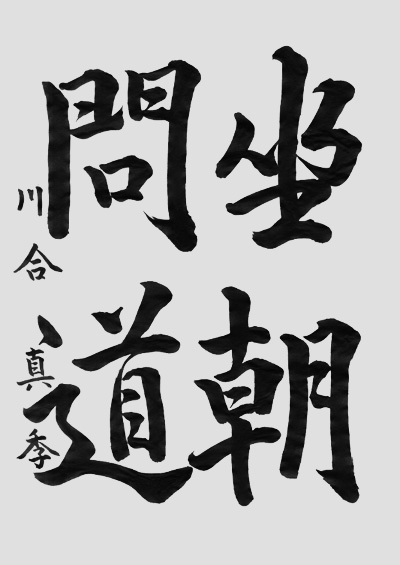 坐朝
問道
川合真季